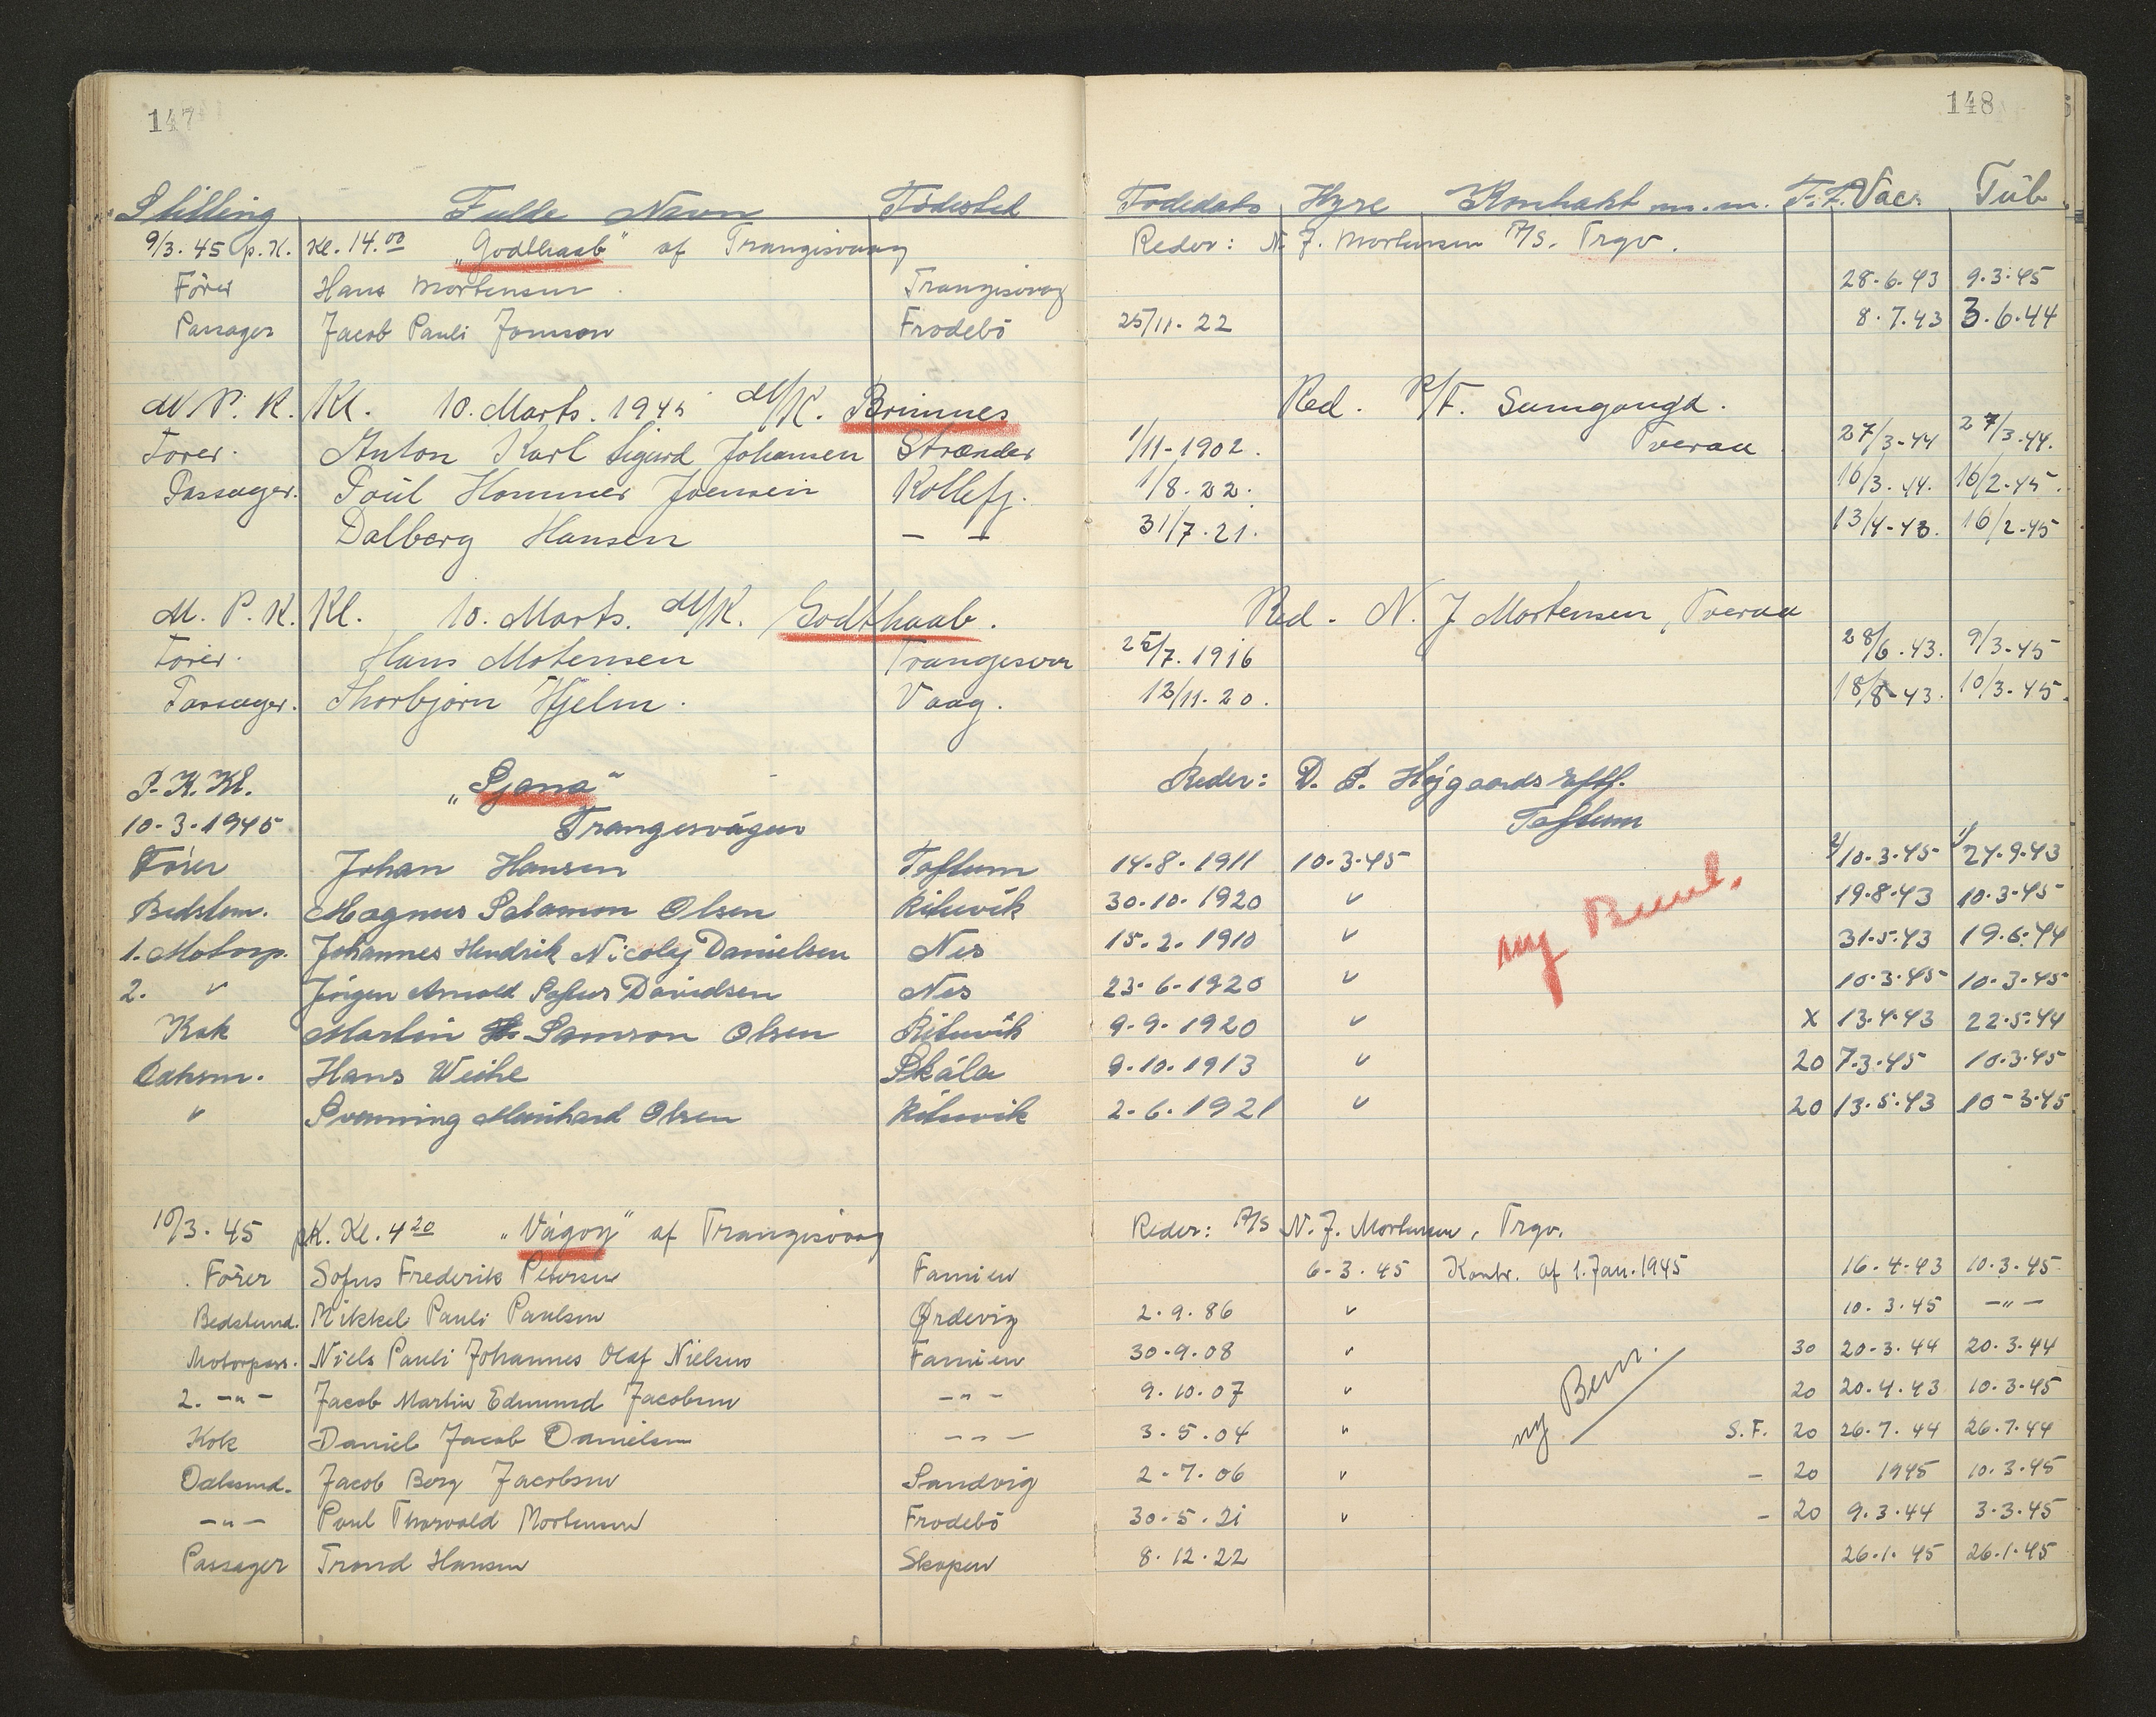 147
148
Stilling Fulde Navn Fødested Fødedato Hyre Kontrakt m.m. F.T. Vac. Tub.
9/3. 45 p.K. Kl. 14.00 "Godthaab" af Trangisvaag Reder: N. J. Mortensen A/S. Trgv.
Fører Hans Mortensen. Trangisvag 28-6-43 9.3.45
Passager Jacob Pauli Joensen Frodebö 25/11. 22 8.7.43 3.6.44
M. P. K. Kl. 10. Marts. 1945 M/K. Brimnes Red. P/F. Sumgongd.
Fører. Anton Karl Sigurd Johansen Strænder 1/11-1902. Tveraa 27/3-44 27/3-44.
Passager. Poul Hommer Joensen Kollefj. 1/8.22. 16/3.44. 16/2-45.
Dalberg Hansen — — 31/7.21. 13/4-43. 16/2-45
M. P. K. Kl. 10. Marts. M/K. Godthaab. Red. N. J Mortensen, Tveraa
Fører. Hans Motensen Trangisvaa 25/7.1916 28/6.43. 9/3-45
Passager. Thorbjørn Hjelm. Vaag. 12/11.20. 18/8-43. 10/3-45.
P.K.Kl. "Sjana" Reder: D. P. Højgaards Eftf.
10-3-1945 Trangesvágur Toftum
Fører Johan Hansen Toftum 14-8-1911 10-3-45 2/10-3-45 1/24-9-43
Bedstem. Magnus Salamon Olsen Rituvík 30-10-1920 " 19-8-43 10-3-45
1. Motorp. Johannes Hendrik Nicolaj Danielsen Nes 15-2-1910 " ny Bem. 31-5-43 19-6-44
2. " Jörgen Arnold Sofus Davidsen Nes 23-6-1920 " 10-3-45 10-3-45
Kok Martin Samson Olsen Rituvík 9-9-1920 " X 13-4-43 22-5-44
Dæksm. Hans Weihe Skála 9-10-1913 " 20 7-3-45 10-3-45
" Svenning Meinhard Olsen Rituvík 2-6-1921 " 20 13-5-43 10-3-45
10/3. 45 pK. Kl. 4 20 "Vágoy" af Trangisvaag Reder: A/S N. J. Mortensen, Trgv.
Fører Sofus Frederik Petersen Famien 6-3-45 Kontr. af 1. Jan. 1945 16-4-43 10.3.45
Bedstmd. Mikkel Pauli Paulsen Ørdevig 2-9-86 " 10.3.45 —"—
Motorpass. Niels Pauli Johannes Olaf Nielsen Famien 30-9-08 " 30 20-3-44 20.3.44
2. —"— Jacob Martin Edmund Jacobsen —"— 9.10.07 " ny Bem. 20 20.4.43 10.3.45
Kok Daniel Jacob Danielsen —"— 3.5.04 " S.F. 20 26.7.44 26.7.44
Dæksmd. Jacob Berg Jacobsen Sandvig 2-7-06 " — 20 1945 10.3.45
—"— Poul Thorvald Mortensen Frodebö 30.5.21 " — 20 9.3.44 3.3.45
Passager Trond Hansen Skopen 8.12.22 26.1.45 26.1.45